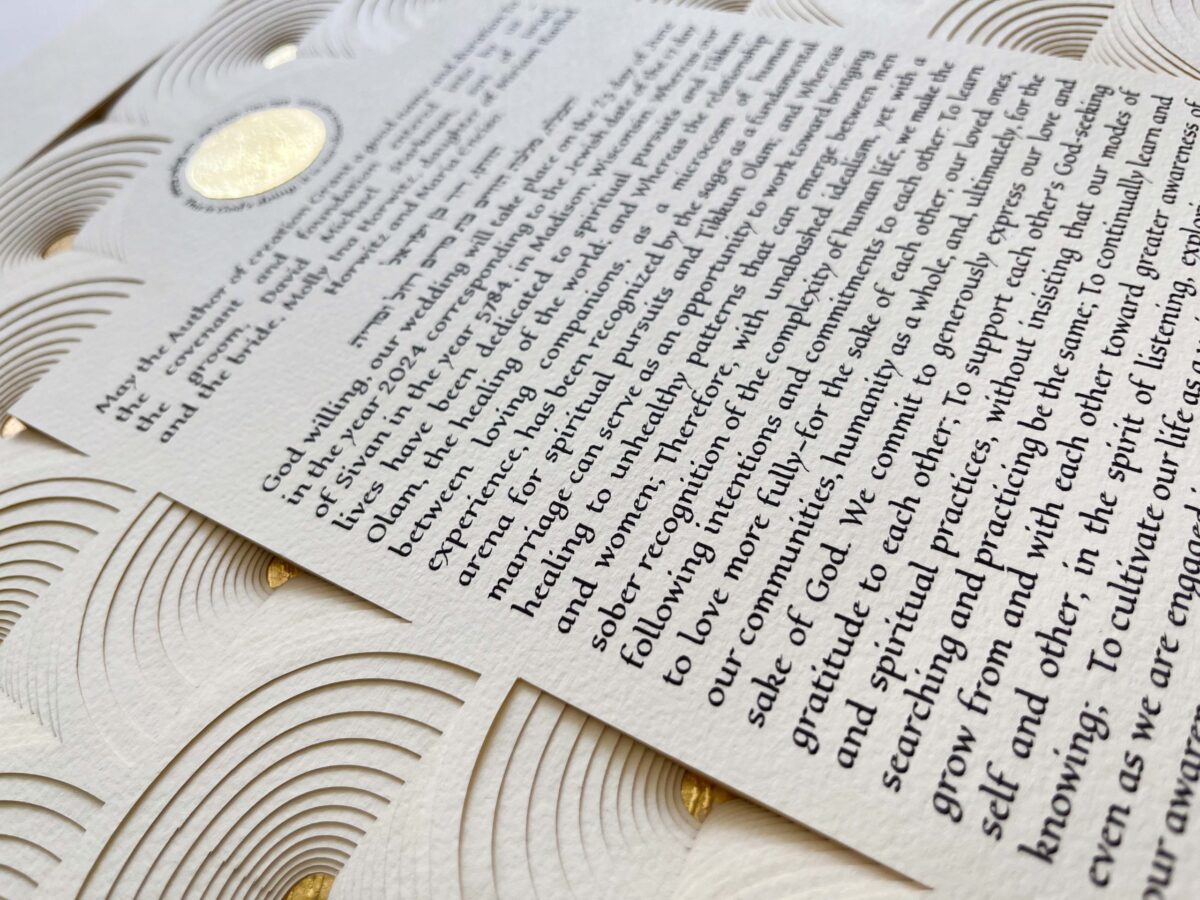 May the Author of creation grant a good name and
the covenant and
the groom, David Michael
and the bride, Molly Ina Horwitz, daughter of
Horwitz and Maria
God willing, our wedding will take place on the 23 day of June
in the year 2024 corresponding to the Jewish date of the 17 day
of Sivan in the year 5784, in Madison, Wisconsin. Whereas our
lives have been dedicated to spiritual pursuits and Tikkun
Olam, the healing of the world; and Whereas the relationship
between loving companions, as a microcosm of human
experience, has been recognized by the sages as a fundamental
arena for spiritual pursuits and Tikkun Olam; and Whereas
marriage can serve as an opportunity to work toward bringing
healing to unhealthy patterns that can emerge between men
and women; Therefore, with unabashed idealism, yet with a
sober recognition of the complexity of human life, we make the
following intentions and commitments to each other: To learn
to love more fully–for the sake of each other, our loved ones,
our communities, humanity as a whole, and, ultimately, for the
sake of God. We commit to generously express our love and
gratitude to each other; To support each other's God-seeking
and spiritual practices, without insisting that our modes of
searching and practicing be the same; To continually learn and
grow from and with each other toward greater awareness of
self and other, in the spirit of listening,
knowing; To cultivate our life as a
even as we are engaged
our